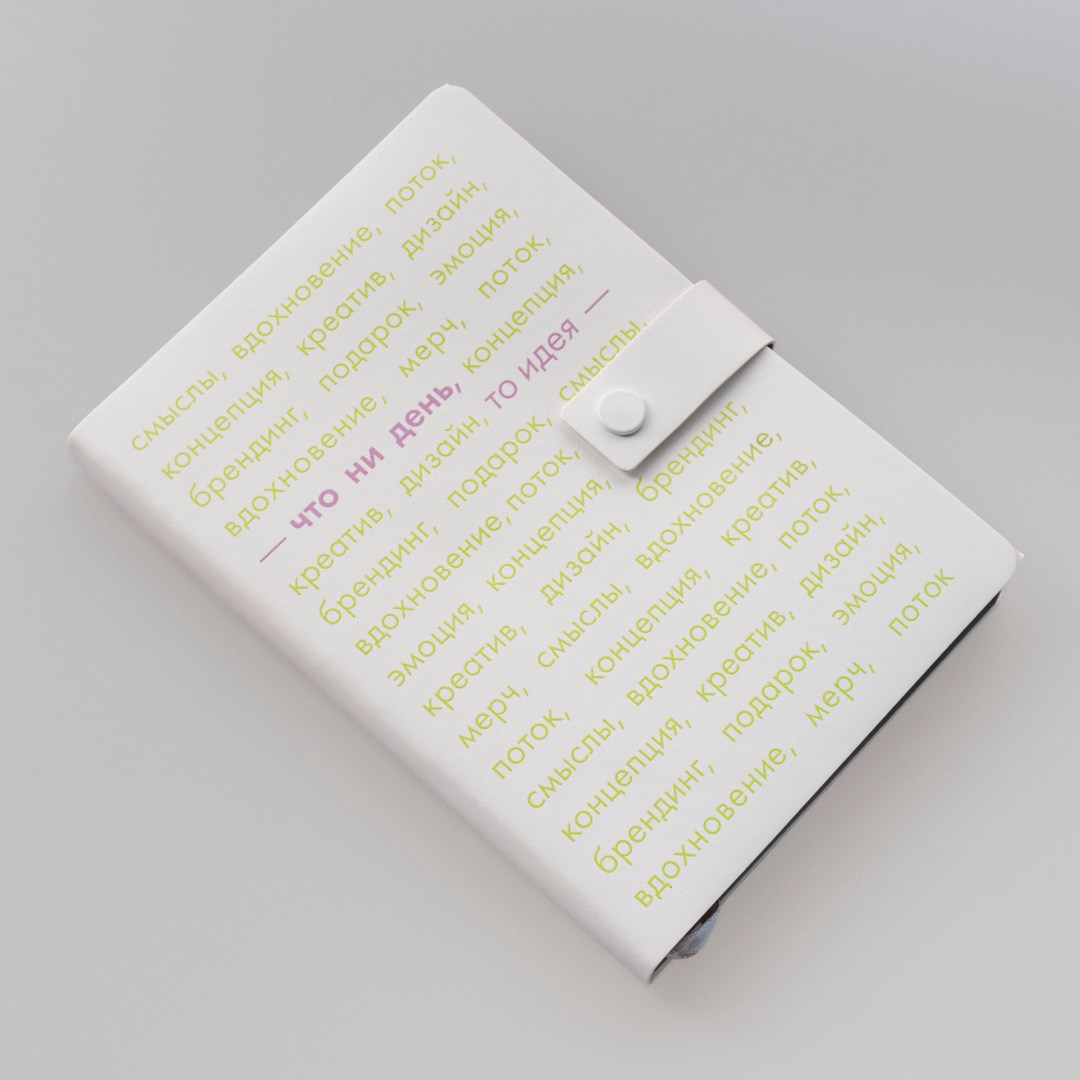 смыслы, вдохновение, поток,
концепция, креатив, дизайн,
брендинг, подарок, эмоция,
вдохновение, мерч, поток,
— что ни день, концепция,
креатив, дизайн, то идея —
брендинг, подарок, смыслы,
вдохновение, поток,
эмоция, концепция,
креатив, дизайн, брендинг,
мерч, смыслы, вдохновение,
поток, концепция, креатив,
смыслы, вдохновение, поток,
концепция, креатив, дизайн,
брендинг, подарок, эмоция,
вдохновение, мерч, поток